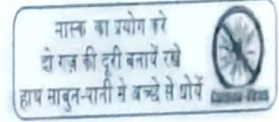 मास्क का प्रयोग करे
दो गज़ की दूरी बनायें रखे
हाथ साबुन-पानी से अच्छे से धोयें
Corona Virus